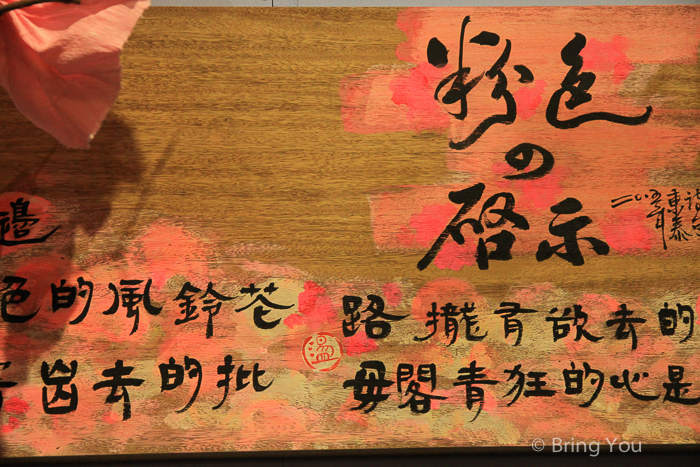 粉色
の
啓示
邊
色的風鈴花 路攏有欲去的
去的批 毋閣青狂的心是
© Bring You